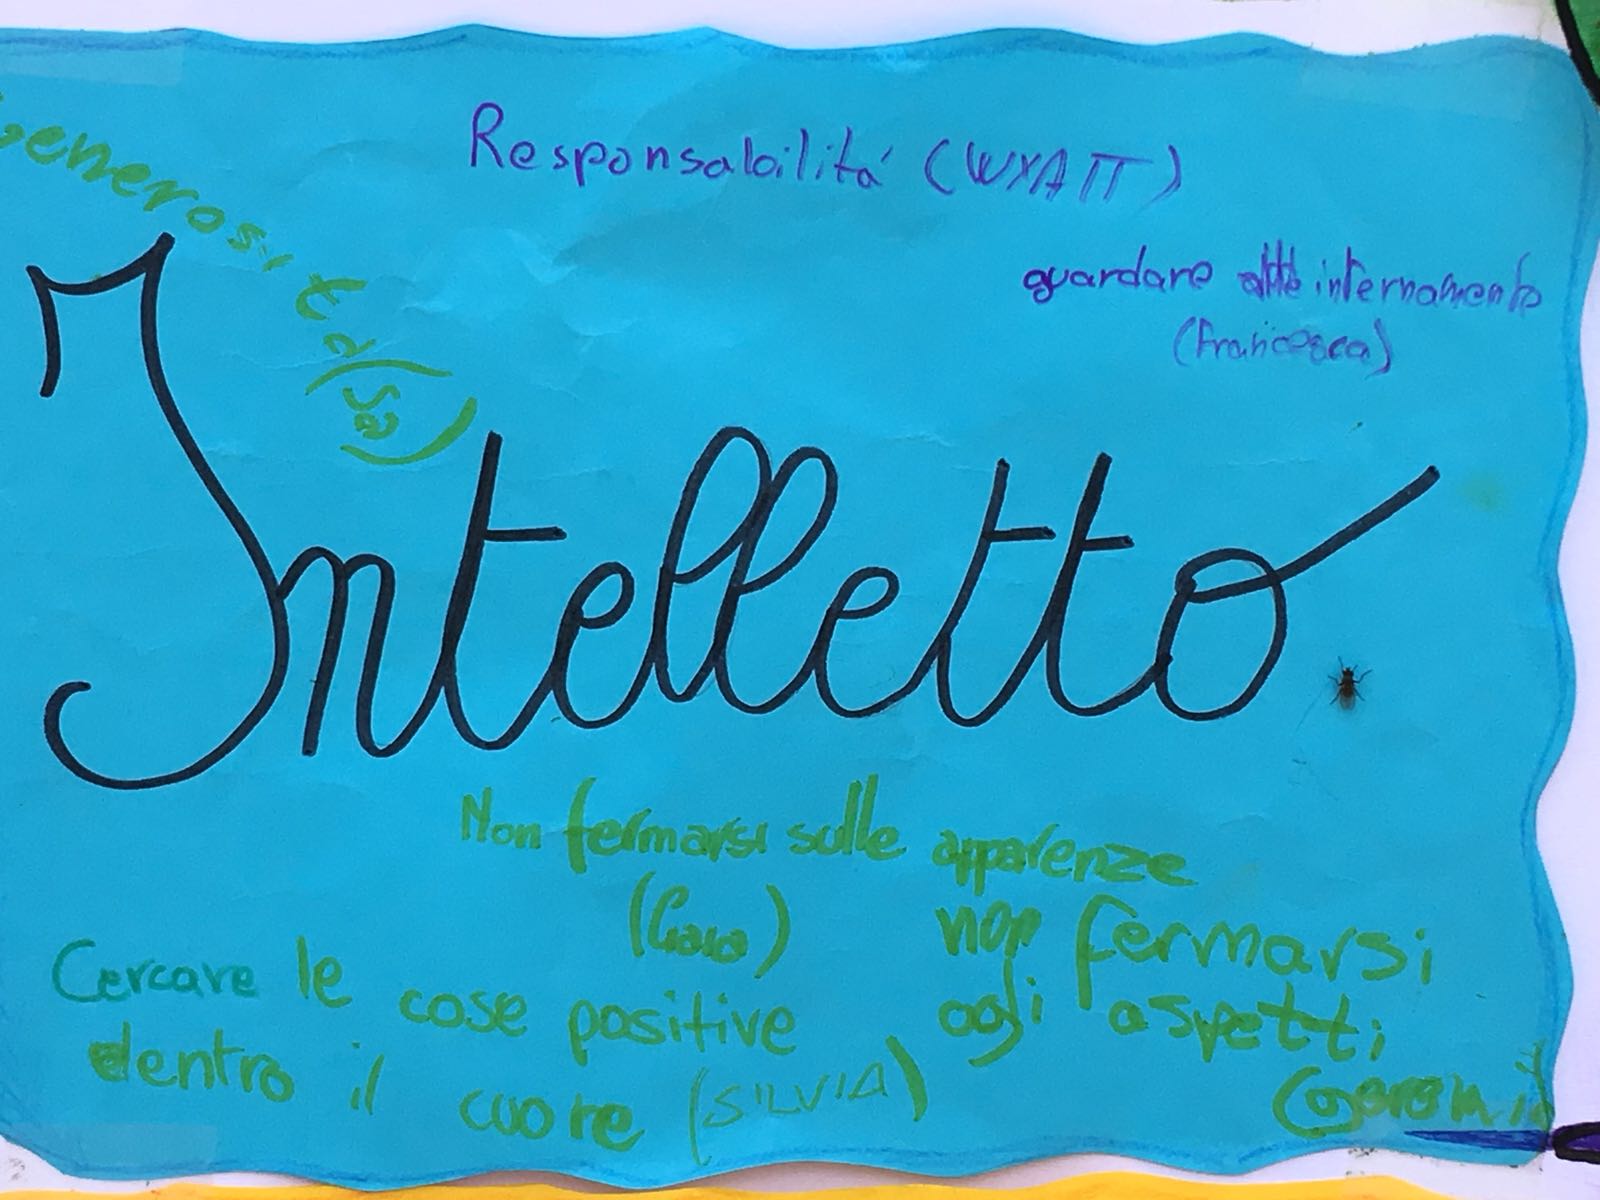 Responsabilitá (WYATT)
generosità (Sa)
guardare internamente
(Francesca)
Intelletto
Non fermarsi sulle apparenze
(Gaia)
non fermarsi
agli aspetti
Cercare le cose positive
dentro il cuore (SILVIA)